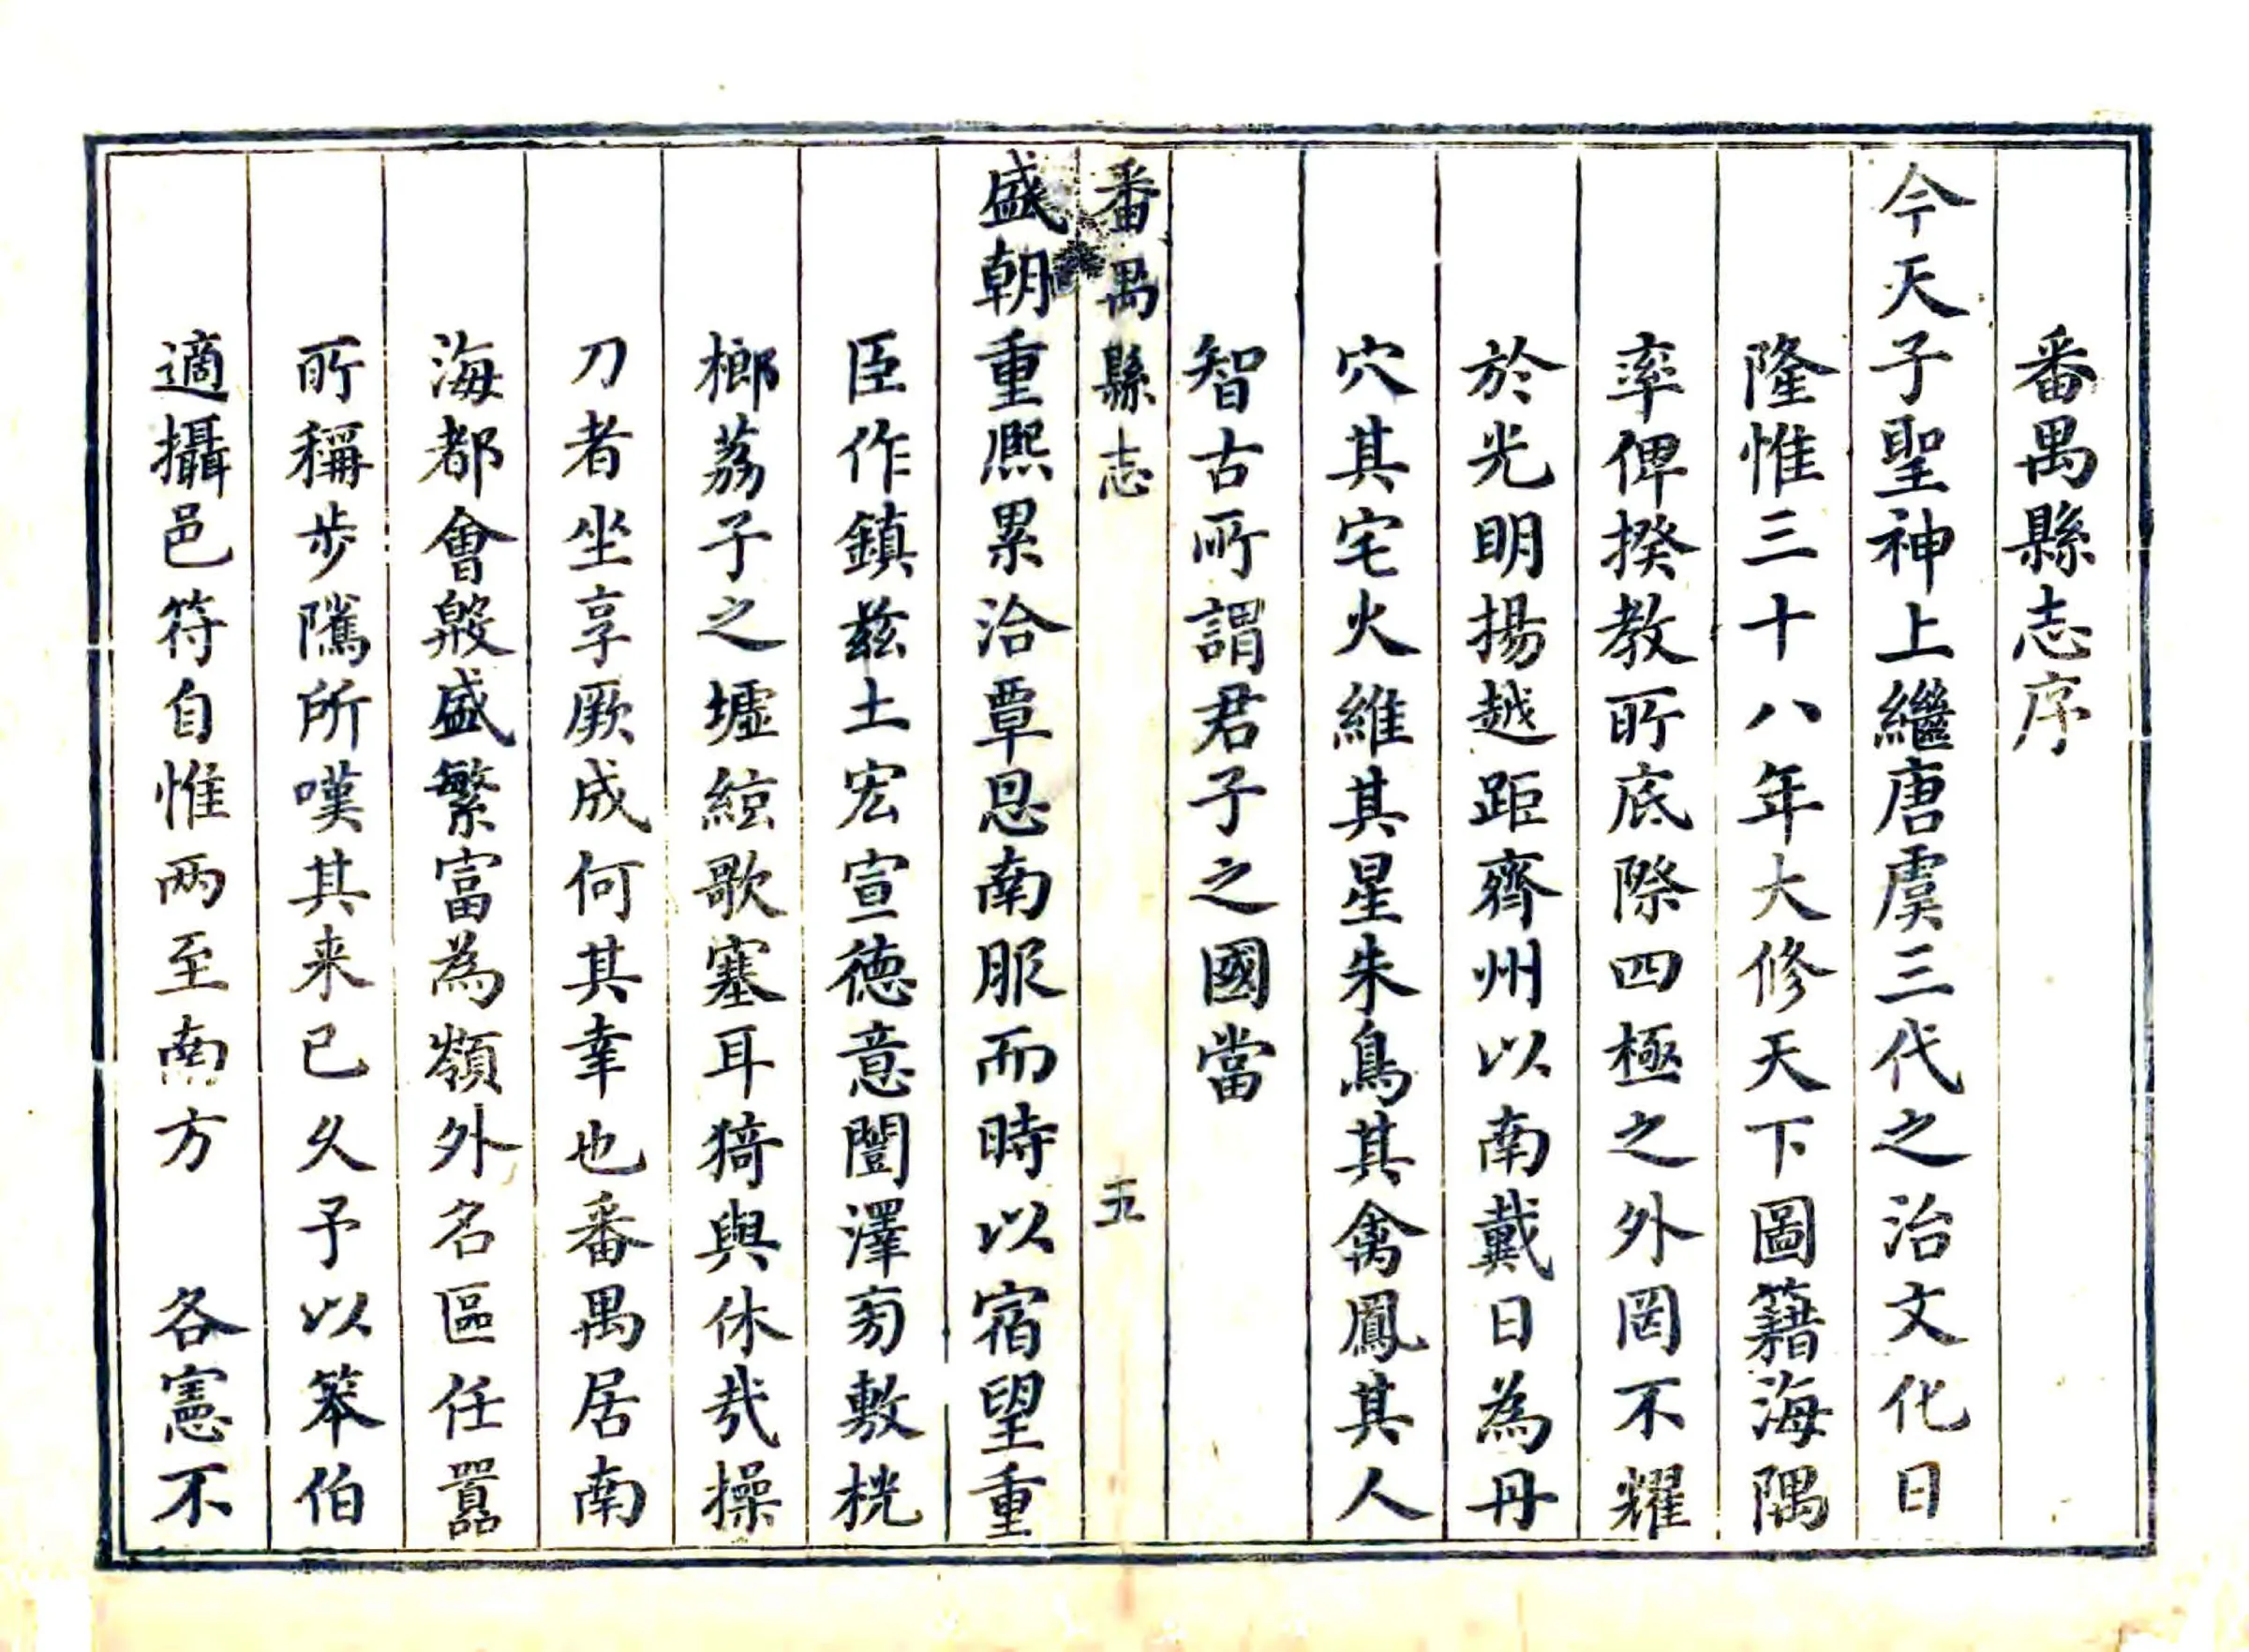 番禺縣志序
今天子聖神上繼唐虞三代之治文化日
隆惟三十八年大修天下圖籍海隅
率俾揆教所底際四極之外罔不耀
於光明揚越距齊州以南戴日為丹
穴其宅火維其星朱鳥其禽鳳其人
智古所謂君子之國當
番禺縣志 五
盛朝重熈累洽覃恩南服而時以宿望重
臣作鎮茲土宏宣德意闓澤旁敷桄
榔荔子之墟絃歌塞耳猗與休哉操
刀者坐享厥成何其幸也番禺居南
海都會殷盛繁富為嶺外名區任囂
所稱步隲所嘆其来已久予以笨伯
適攝邑符自惟两至南方 各憲不